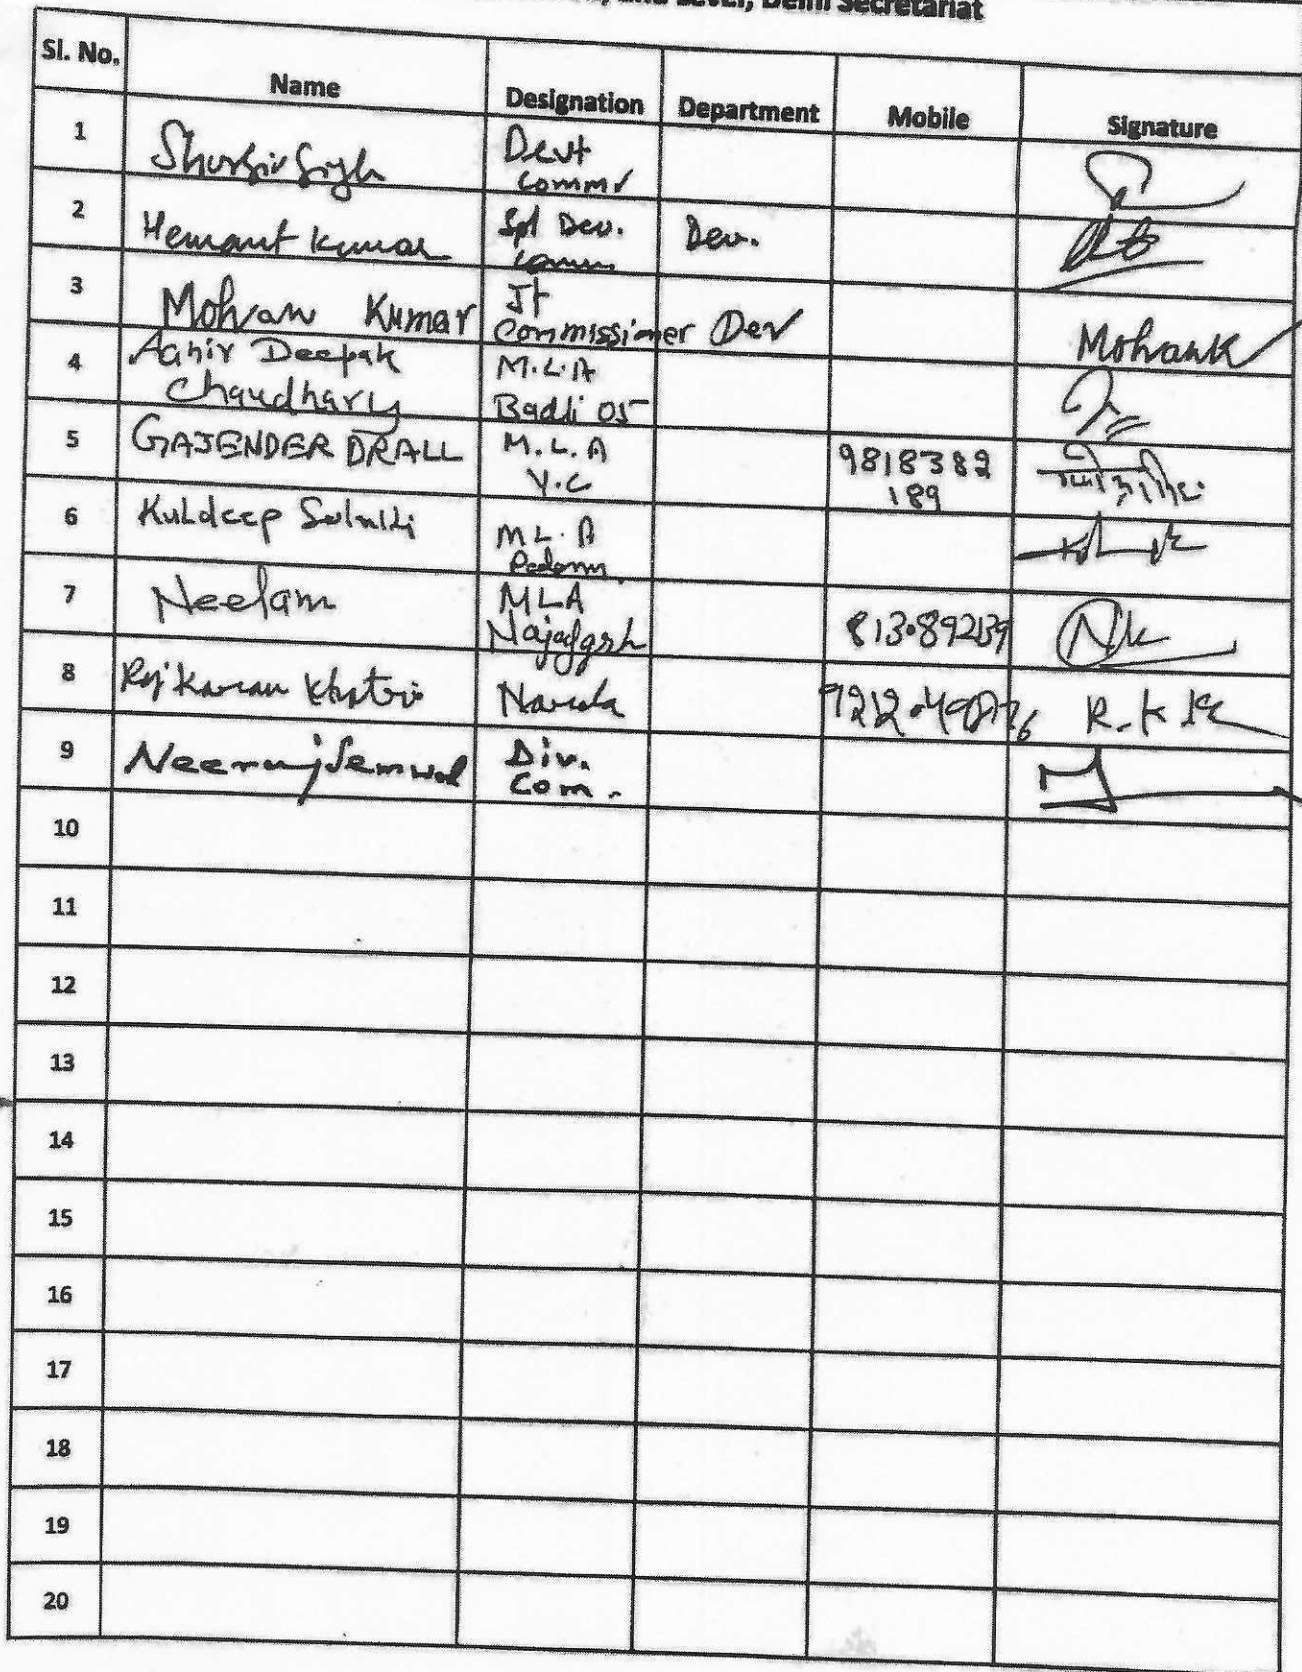 Level, Delhi Secretariat
Sl. No. Name Designation Department Mobile Signature
1 Shurbir Singh Devt
Commr
2 Hemant Kumar Spl Dev. Dev.
Comm
3 Mohan Kumar Jt
Commissioner Dev Mohank
4 Aahir Deepak M.L.A
Chaudhary Badli 05
5 GAJENDER DRALL M.L.A 9818382
V.C 189
6 Kuldeep M.L.A
7 Neelam MLA
Najafgarh
8 Raj Karan Khatri Narela R.K
9 Neeraj Semwal Div.
Com.
10
11
12
13
14
15
16
17
18
19
20